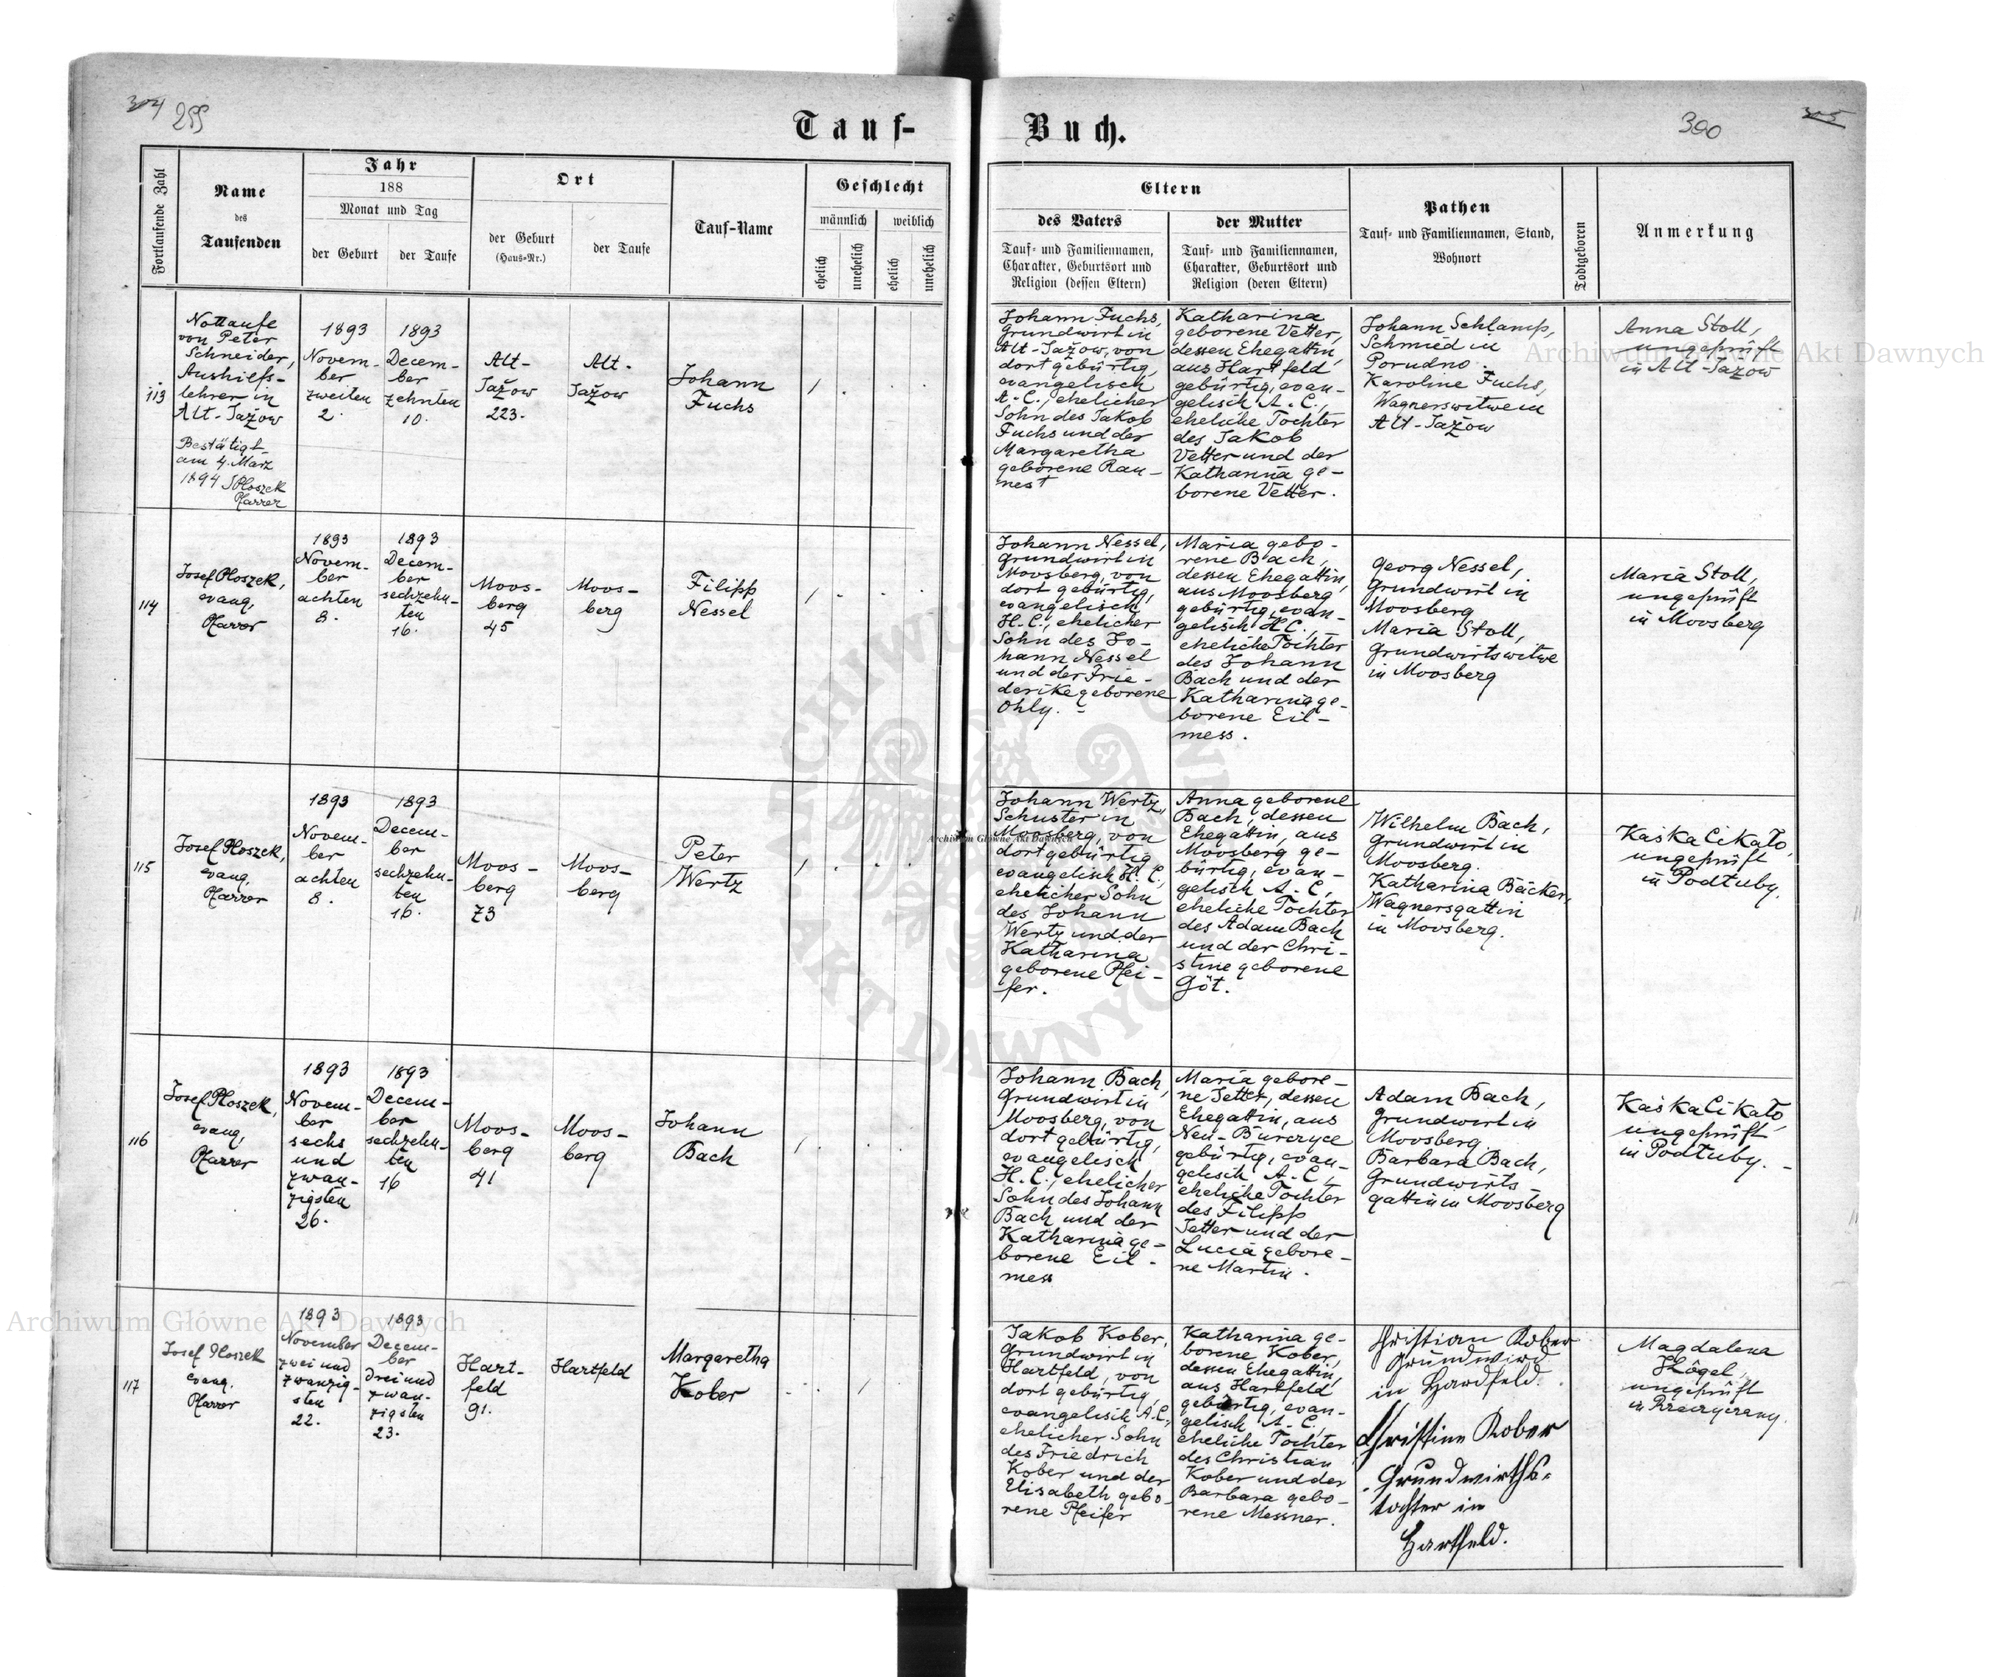 304 299
Tauf-
Buch.
300
305
Fortlaufende Zahl
Name
des
Taufenden
Jahr
188
Monat und Tag
der Geburt
der Taufe
Ort
der Geburt
(Haus-Nr.)
der Taufe
Tauf-Name
Geschlecht
männlich
weiblich
ehelich
unehelich
ehelich
unehelich
Eltern
des Vaters
Tauf- und Familiennamen,
Charakter, Geburtsort und
Religion (dessen Eltern)
der Mutter
Tauf- und Familiennamen,
Charakter, Geburtsort und
Religion (deren Eltern)
Pathen
Tauf- und Familiennamen, Stand,
Wohnort
Todtgeboren
Anmerkung
113
Nottaufe
von Peter
Schneider,
Aushilfs-
lehrer in
Alt-Jažow
Bestätigt
am 4. März
1894 JPloszek
Pfarrer
1893
Novem-
ber
zweiten
2.
1893
Decem-
ber
zehnten
10.
Alt-
Jažow
223.
Alt-
Jažow
Johann
Fuchs
Johann Fuchs,
Grundwirt in
Alt-Jažow, von
dort gebürtig,
evangelisch
A.C., ehelicher
Sohn des Jakob
Fuchs und der
Margaretha
geborene Rau-
nest
Katharina
geborene Vetter,
dessen Ehegattin,
aus Hartfeld
gebürtig, evan-
gelisch A.C.,
eheliche Tochter
des Jakob
Vetter und der
Katharina ge-
borene Vetter.
Johann Schlamp,
Schmied in
Porudno.
Karoline Fuchs,
Wagnerswitwe in
Alt-Jažow
Anna Stoll,
ungeprüft
in Alt-Jažow
114
Josef Ploszek,
evang.
Pfarrer
1893
Novem-
ber
achten
8.
1893
Decem-
ber
sechzehn-
ten
16.
Moos-
berg
45
Moos-
berg
Filipp
Nessel
Johann Nessel,
Grundwirt in
Moosberg, von
dort gebürtig,
evangelisch
H.C., ehelicher
Sohn des Jo-
hann Nessel
und der Frie-
derike geborene
Ohly.
Maria gebo-
rene Bach,
dessen Ehegattin,
aus Moosberg
gebürtig, evan-
gelisch H.C.,
eheliche Tochter
des Johann
Bach und der
Katharina ge-
borene Eil-
mess.
Georg Nessel,
Grundwirt in
Moosberg
Maria Stoll,
Grundwirtswitwe
in Moosberg
Maria Stoll,
ungeprüft
in Moosberg
115
Josef Ploszek,
evang.
Pfarrer
1893
Novem-
ber
achten
8.
1893
Decem-
ber
sechzehn-
ten
16.
Moos-
berg
73
Moos-
berg
Peter
Wertz
Johann Wertz,
Schuster in
Moosberg, von
dort gebürtig,
evangelisch H.C.,
ehelicher Sohn
des Johann
Wertz und der
Katharina
geborene Pfei-
fer.
Anna geborene
Bach, dessen
Ehegattin, aus
Moosberg ge-
bürtig, evan-
gelisch A.C.,
eheliche Tochter
des Adam Bach
und der Chri-
stine geborene
Göt.
Wilhelm Bach,
Grundwirt in
Moosberg.
Katharina Bäcker,
Wagnersgattin
in Moosberg.
Kaśka Cikało,
ungeprüft
in Podłuby.
116
Josef Ploszek,
evang.
Pfarrer
1893
Novem-
ber
sechs
und
zwan-
zigsten
26.
1893
Decem-
ber
sechzehn-
ten
16
Moos-
berg
41
Moos-
berg
Johann
Bach
Johann Bach,
Grundwirt in
Moosberg, von
dort gebürtig,
evangelisch
H.C., ehelicher
Sohn des Johann
Bach und der
Katharina ge-
borene Eil-
mess
Maria gebore-
ne Jetter, dessen
Ehegattin, aus
Neu-Burczyce
gebürtig, evan-
gelisch A.C.,
eheliche Tochter
des Filipp
Jetter und der
Lucia gebore-
ne Martin.
Adam Bach,
Grundwirt in
Moosberg
Barbara Bach,
Grundwirts-
gattin in Moosberg
Kaśka Cikało,
ungeprüft
in Podłuby.
117
Josef Ploszek
evang.
Pfarrer
1893
November
zwei und
zwanzig-
sten
22.
1893
Decem-
ber
drei und
zwan-
zigsten
23.
Hart-
feld
91.
Hartfeld
Margaretha
Kober
Jakob Kober,
Grundwirt in
Hartfeld, von
dort gebürtig,
evangelisch A.C.,
ehelicher Sohn
des Friedrich
Kober und der
Elisabeth gebo-
rene Pfeifer
Katharina ge-
borene Kober,
dessen Ehegattin,
aus Hartfeld
gebürtig, evan-
gelisch A.C.,
eheliche Tochter
des Christian
Kober und der
Barbara gebo-
rene Messner.
Christian Kober
Grundwird
in Hardfeld.
Christine Kober
Grundwirths-
tochter in
Hartfeld.
Magdalena
Högel,
ungeprüft
Archiwum Główne Akt Dawnych
Archiwum Główne Akt Dawnych
Archiwum Główne Akt Dawnych